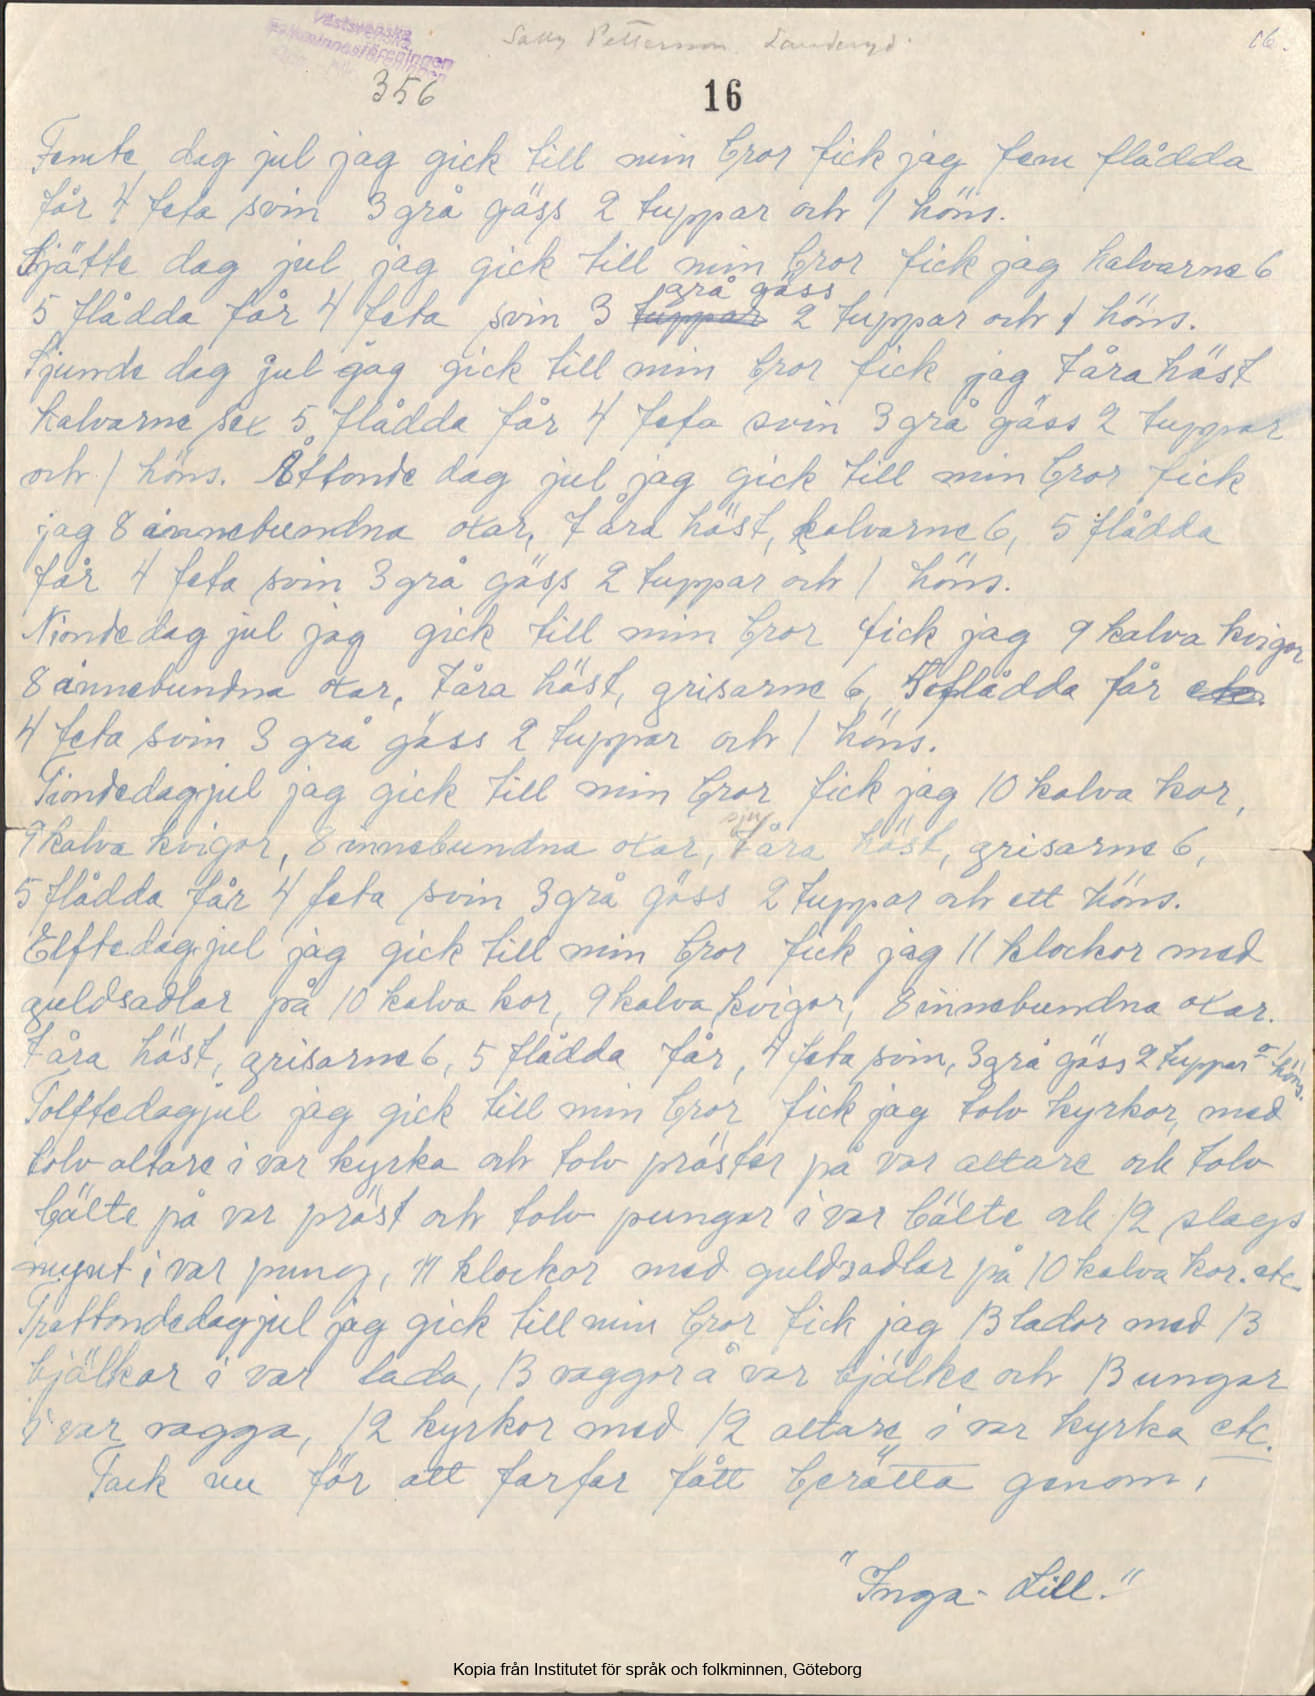 Västsvenska
Folkminnesföreningen
Sally Pettersson Landeryd.
16.
356
16
Femte dag jul jag gick till min bror fick jag fem flådda
får 4 feta svin 3 grå gäss 2 tuppar och 1 höns.
Sjätte dag jul jag gick till min bror fick jag kalvarne 6
grå gäss
5 flådda får 4 feta svin 3 tuppar 2 tuppar och 1 höns.
Sjunde dag jul jag gick till min bror fick jag 7 åra häst
kalvarne sex 5 flådda får 4 feta svin 3 grå gäss 2 tuppar
och 1 höns. Åttonde dag jul jag gick till min bror fick
jag 8 innebundna oxar, 7 åra häst, kalvarne 6, 5 flådda
får 4 feta svin 3 grå gäss 2 tuppar och 1 höns.
Nionde dag jul jag gick till min bror fick jag 9 kalva kvigor
8 innebundna oxar, 7 åra häst, grisarne 6, 5 flådda får etc.
4 feta svin 3 grå gäss 2 tuppar och 1 höns.
Tiondedagjul jag gick till min bror fick jag 10 kalva kor,
9 kalva kvigor, 8 innebundna oxar, 7 åra häst, grisarne 6,
5 flådda får 4 feta svin 3 grå gäss 2 tuppar och ett höns.
Elftedagjul jag gick till min bror fick jag 11 klockor med
guldsadlar på 10 kalva kor, 9 kalva kvigor, 8 innebundna oxar.
7 åra häst, grisarne 6, 5 flådda får, 4 feta svin, 3 grå gäss 2 tuppar o 1 höns.
Tolftedagjul jag gick till min bror fick jag tolv kyrkor, med
tolv altare i var kyrka och tolv präster på var altare och tolv
bälte på var präst och tolv pungar i var bälte och 12 slags
mynt i var pung, 11 klockor med guldsadlar på 10 kalva kor. etc.
Trettondedagjul jag gick till min bror fick jag 13 lador med 13
bjälkar i var lada, 13 vaggor å var bjälke och 13 ungar
i var vagga, 12 kyrkor med 12 altare i var kyrka etc.
Tack nu för att farfar fått berätta genom,
"Inga-Lill."
Kopia från Institutet för språk och folkminnen, Göteborg